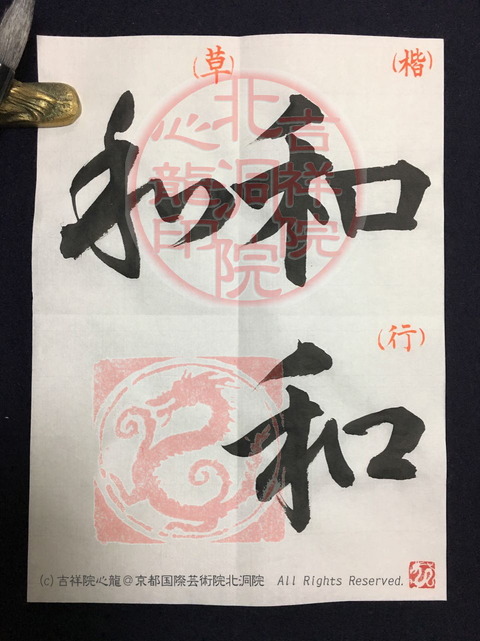 (楷)
和
(行)
和
(草)
和
吉祥院
北洞院
心龍印
(c) 吉祥院心龍@京都国際芸術院北洞院 All Rights Reserved.